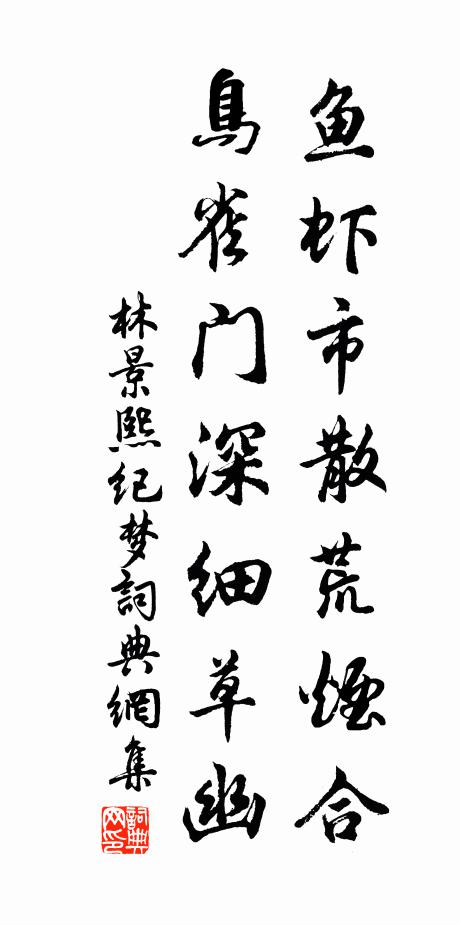 鱼虾市散荒烟合
鳥雀门深细草幽
林景熙纪梦詞典網集
詞典网印